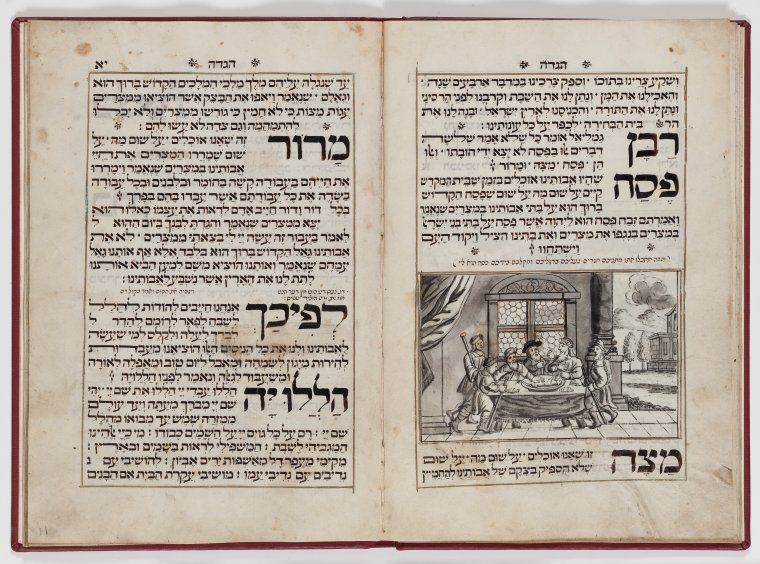 הגדה
ושקע צרינו בתוכו · וספק צרכינו במדבר ארבעים שנה ·
והאכילנו את המן · ונתן לנו את השבת · וקרבנו לפני הר סיני
ונתן לנו את התורה · והכניסנו לארץ ישראל · ובנה לנו את
בית הבחירה · לכפר על כל עונותינו :
רבן גמליאל אומר כל שלא אמר שלשה
דברים אלו בפסח לא יצא ידי חובתו · ואלו
הן · פסח · מצה · ומרור :
פסח שהיו אבותינו אוכלים בזמן שבית המקדש
קיים על שום מה על שום שפסח הקדוש
ברוך הוא על בתי אבותינו במצרים שנאמר
ואמרתם זבח פסח הוא ליהוה אשר פסח על בתי בני ישראל
במצרים בנגפו את מצרים ואת בתינו הציל ויקוד העם
וישתחוו :
( וככה תאכלו אתו מתניכם חגרים נעליכם ברגליכם ומקלכם בידכם פסח הוא ליי )
מצה זו שאנו אוכלים · על שום מה · על שום
שלא הספיק בצקם של אבותינו להחמיץ
הגדה
יא
עד שנגלה עליהם מלך מלכי המלכים הקדוש ברוך הוא
וגאלם · שנאמר ויאפו את הבצק אשר הוציאו ממצרים
עגות מצות כי לא חמץ כי גורשו ממצרים ולא יכלו
להתמהמה וגם צדה לא עשו להם :
מרור זה שאנו אוכלים · על שום מה · על
שום שמררו המצרים את חיי
אבותינו במצרים שנאמר וימררו
את חייהם בעבודה קשה בחומר ובלבנים ובכל עבודה
בשדה את כל עבודתם אשר עבדו בהם בפרך :
בכל דור ודור חייב אדם לראות את עצמו כאלו הוא
יצא ממצרים שנאמר והגדת לבנך ביום ההוא
לאמר בעבור זה עשה יי לי בצאתי ממצרים · לא את
אבותינו גאל הקדוש ברוך הוא בלבד אלא אף אותנו גאל
עמהם שנאמר ואותנו הוציא משם למען הביא אותנו
לתת לנו את הארץ אשר נשבע לאבותינו :
לפיכך אנחנו חייבים להודות להלל
לשבח לפאר לרומם להדר
לברך לעלה ולקלס למי שעשה
לאבותינו ולנו את כל הנסים האלו הוציאנו מעבדות
לחירות מיגון לשמחה ומאבל ליום טוב ומאפלה לאורה
ומשעבוד לגאלה ונאמר לפניו הללויה :
הללויה הללו עבדי יי הללו את שם יי · יהי
שם יי מברך מעתה ועד עולם
ממזרח שמש עד מבואו מהלל
שם יי : רם על כל גוים יי על השמים כבודו : מי כיי אלהינו
המגביהי לשבת : המשפילי לראות בשמים ובארץ :
מקימי מעפר דל מאשפות ירים אביון : להושיבי עם
נדיבים עם נדיבי עמו : מושיבי עקרת הבית אם הבנים